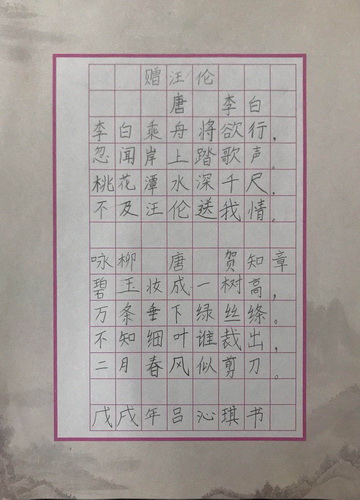 赠汪伦
唐 李白
李白乘舟将欲行，
忽闻岸上踏歌声。
桃花潭水深千尺，
不及汪伦送我情。
咏柳 唐 贺知章
碧玉妆成一树高，
万条垂下绿丝绦。
不知细叶谁裁出，
二月春风似剪刀。
戊戌年吕沁琪书